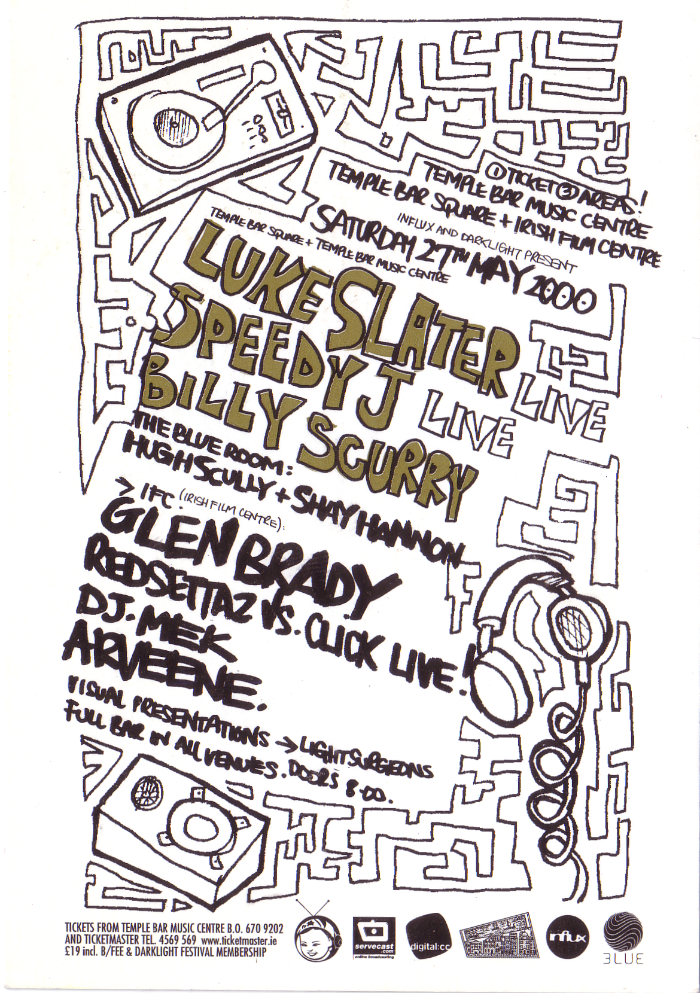 ① TICKET ③ AREAS!
TEMPLE BAR MUSIC CENTRE
TEMPLE BAR SQUARE + IRISH FILM CENTRE
INFLUX AND DARKLIGHT PRESENT
SATURDAY 27TH MAY 2000
TEMPLE BAR SQUARE + TEMPLE BAR MUSIC CENTRE
LUKE SLATER LIVE
SPEEDY J LIVE
BILLY SCURRY
THE BLUE ROOM:
HUGH SCULLY + SHAY HANNON
> IFC (IRISH FILM CENTRE):
GLEN BRADY
REDSETTAZ VS. CLICK LIVE!
DJ. MEK
ARVEENE.
VISUAL PRESENTATIONS → LIGHTSURGEONS
FULL BAR IN ALL VENUES. DOORS 8.00.
TICKETS FROM TEMPLE BAR MUSIC CENTRE B.O. 670 9202
AND TICKETMASTER TEL. 4569 569 www.ticketmaster.ie
£19 incl. B/FEE & DARKLIGHT FESTIVAL MEMBERSHIP
servecast
.com
online broadcasting
digital:cc
influx
3LUE